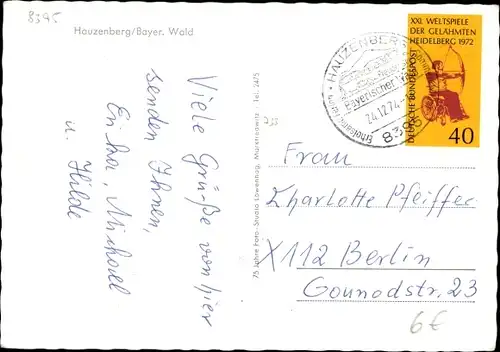 8395
Hauzenberg/Bayer. Wald
Viele Grüße von hier
senden Ihnen,
Erika, Michael
u. Hilde
75 Jahre Foto-Studio Löwenhag, Marktredwitz · Tel. 2475
HAUZENBERG
Bayerischer Wald
24.12.74
8395
XXI. WELTSPIELE
DER GELÄHMTEN
HEIDELBERG 1972
DEUTSCHE BUNDESPOST
40
Frau
Charlotte Pfeiffer
X112 Berlin
Gounodstr. 23
6€